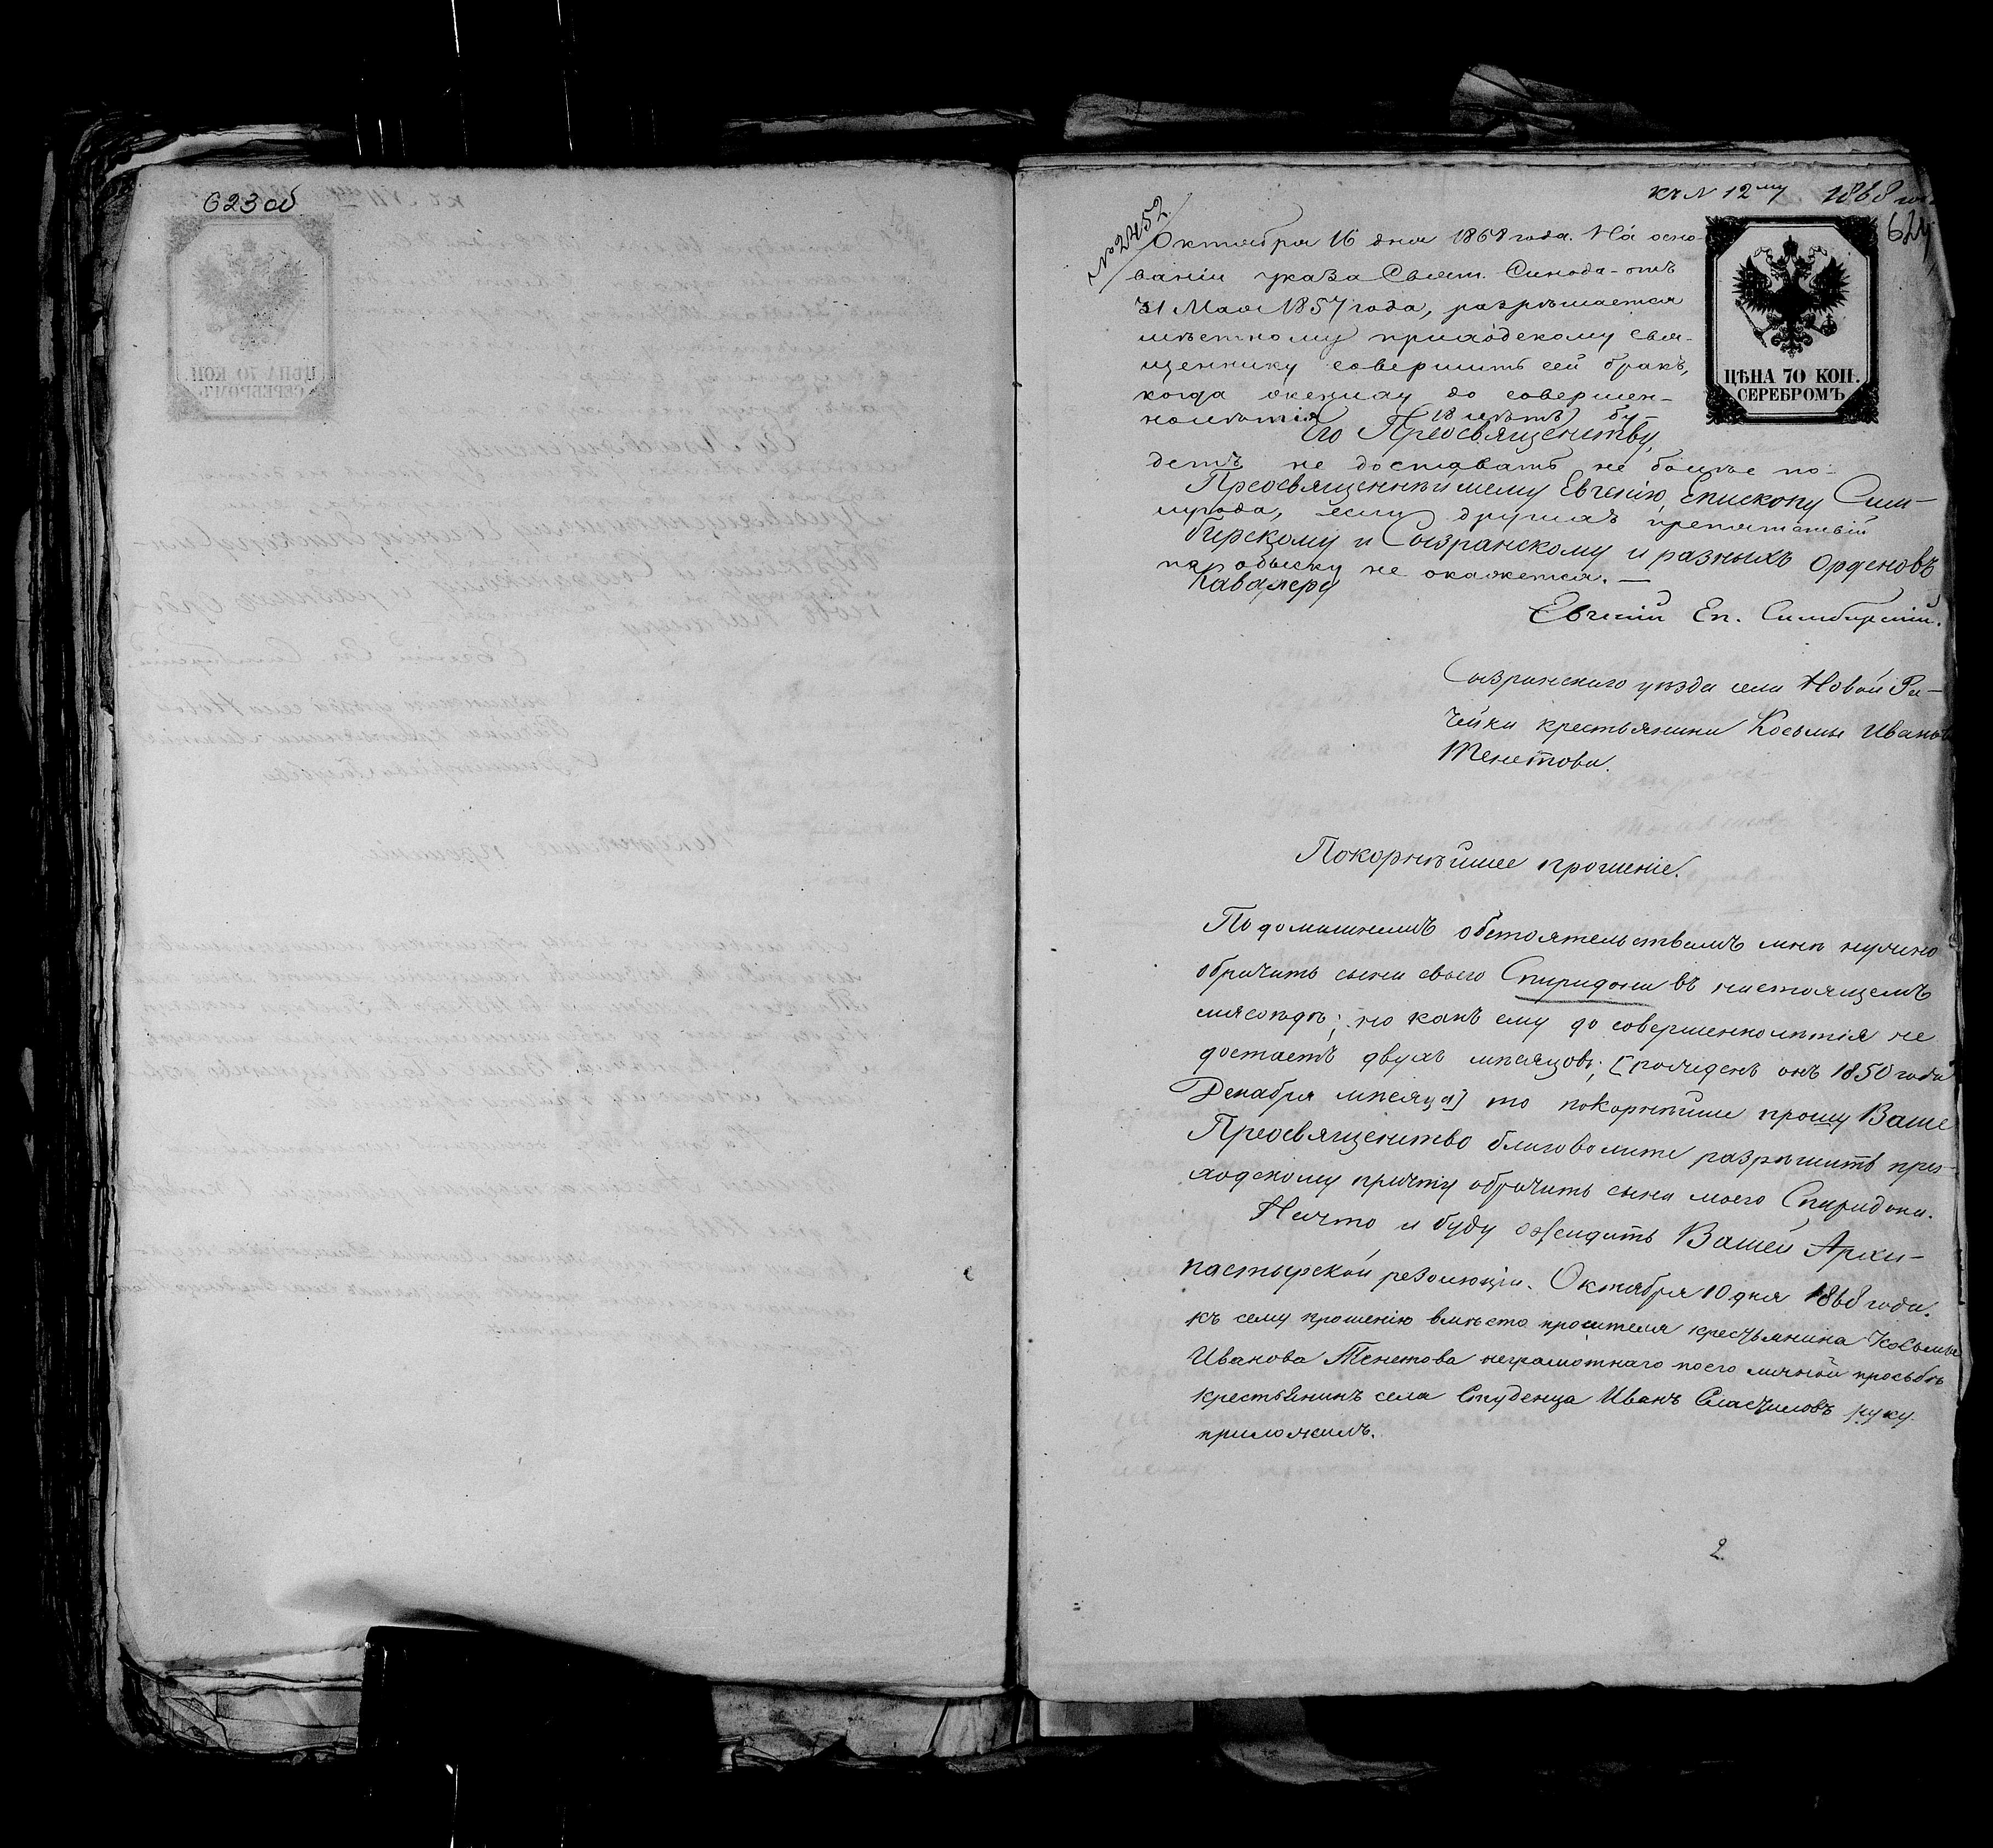 623 об
къ № 12му 1868 года
624
№ 2452
ЦѢНА 70 КОП.
СЕРЕБРОМЪ
Октября 16 дня 1868 года. На осно-
ваніи указа Свят. Синода - отъ
31 Мая 1857 года, разрѣшается
мѣстному приходскому свя-
щеннику совершить сей бракъ,
когда жениху до совершен-
нолѣтія (18 лѣтъ) бу-
детъ не доставать не болѣе по-
лугода, если другихъ препятствій
по обыску не окажется. —
Евгеній Еп. Симбирскій.
Его Преосвященству,
Преосвященнѣйшему Евгенію, Епископу Сим-
бирскому и Сызранскому и разныхъ Орденовъ
Кавалеру
Сызранскаго уѣзда села Новой Ра-
чейки крестьянина Косьмы Иванова
Тенетова.
Покорнѣйшее прошеніе.
По домашнимъ обстоятельствамъ мнѣ нужно
обрачить сына своего Спиридона въ настоящемъ
мясоѣдѣ; но какъ ему до совершеннолѣтія не
достаетъ двухъ мѣсяцовъ; [рожденъ онъ 1850 года
Декабря мѣсяца] то покорнѣйше прошу Ваше
Преосвященство благоволите разрѣшить при-
ходскому причту обрачить сына моего Спиридона.
На что и буду ожидать Вашей Архи-
пастырской резолюціи. Октября 10 дня 1868 года.
Къ сему прошенію вмѣсто просителя крестьянина Косьмы
Иванова Тенетова неграмотнаго по его личной просьбѣ
крестьянинъ села Студенца Иванъ руку
приложилъ.
2